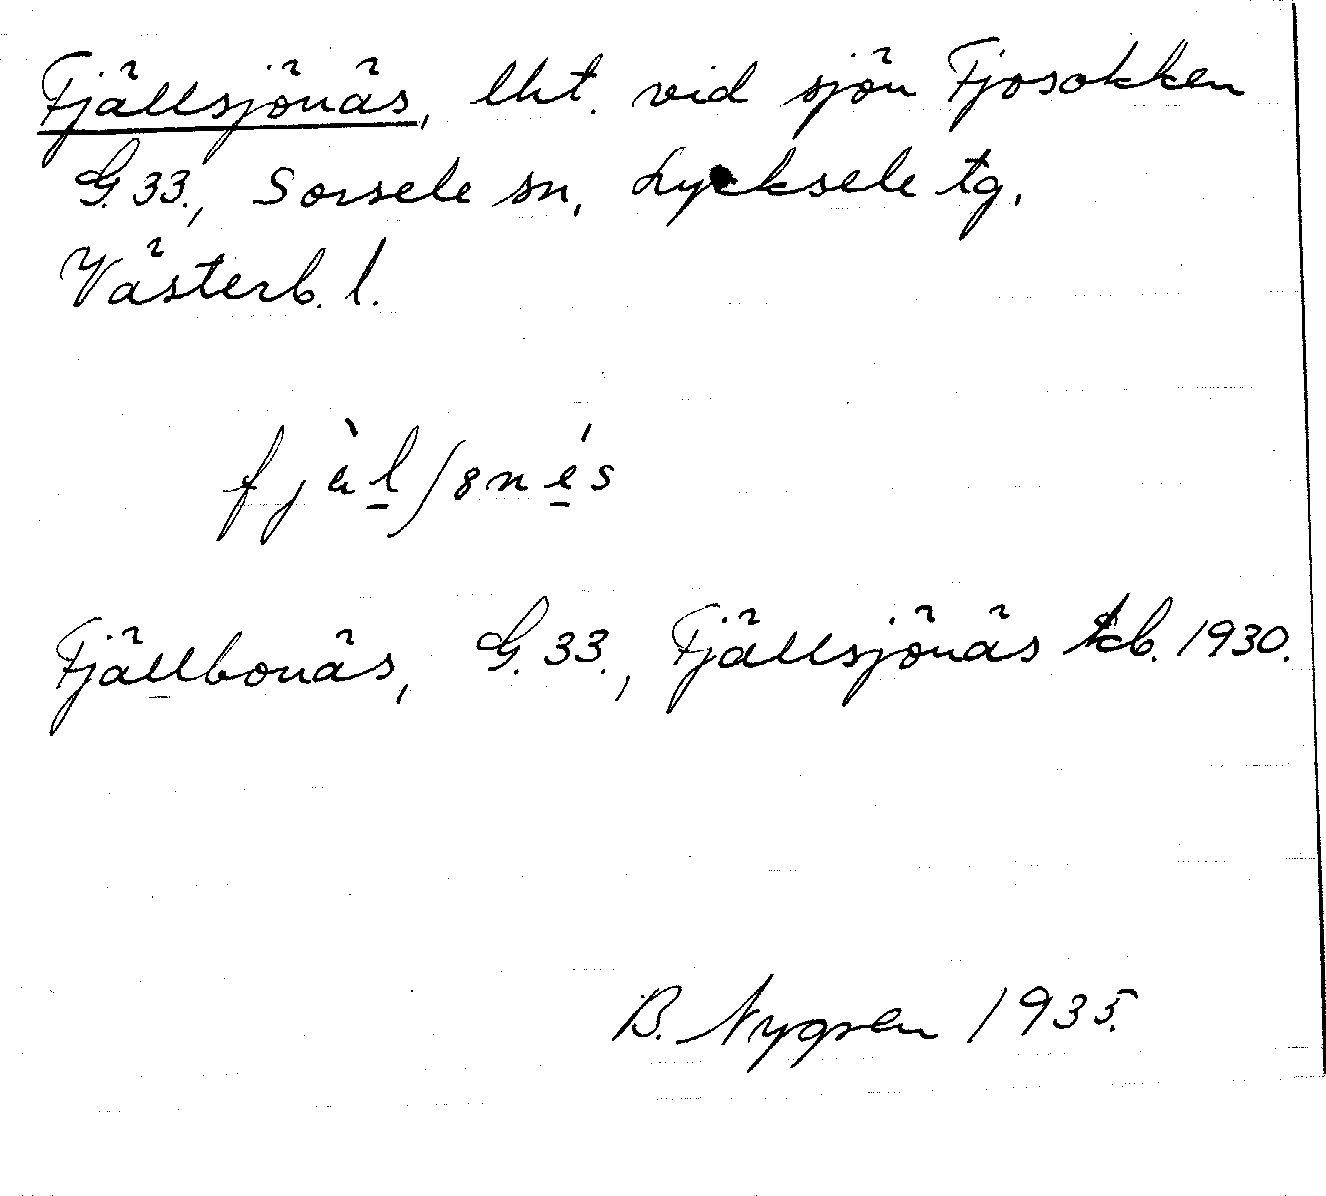 Fjällsjönäs, lht. vid sjön Fjosokken
G. 33., Sorsele sn, Lycksele tg,
Västerb. l.
Fjällbonäs, G. 33., Fjällsjönäs tcb. 1930.
B. Nygren 1935.